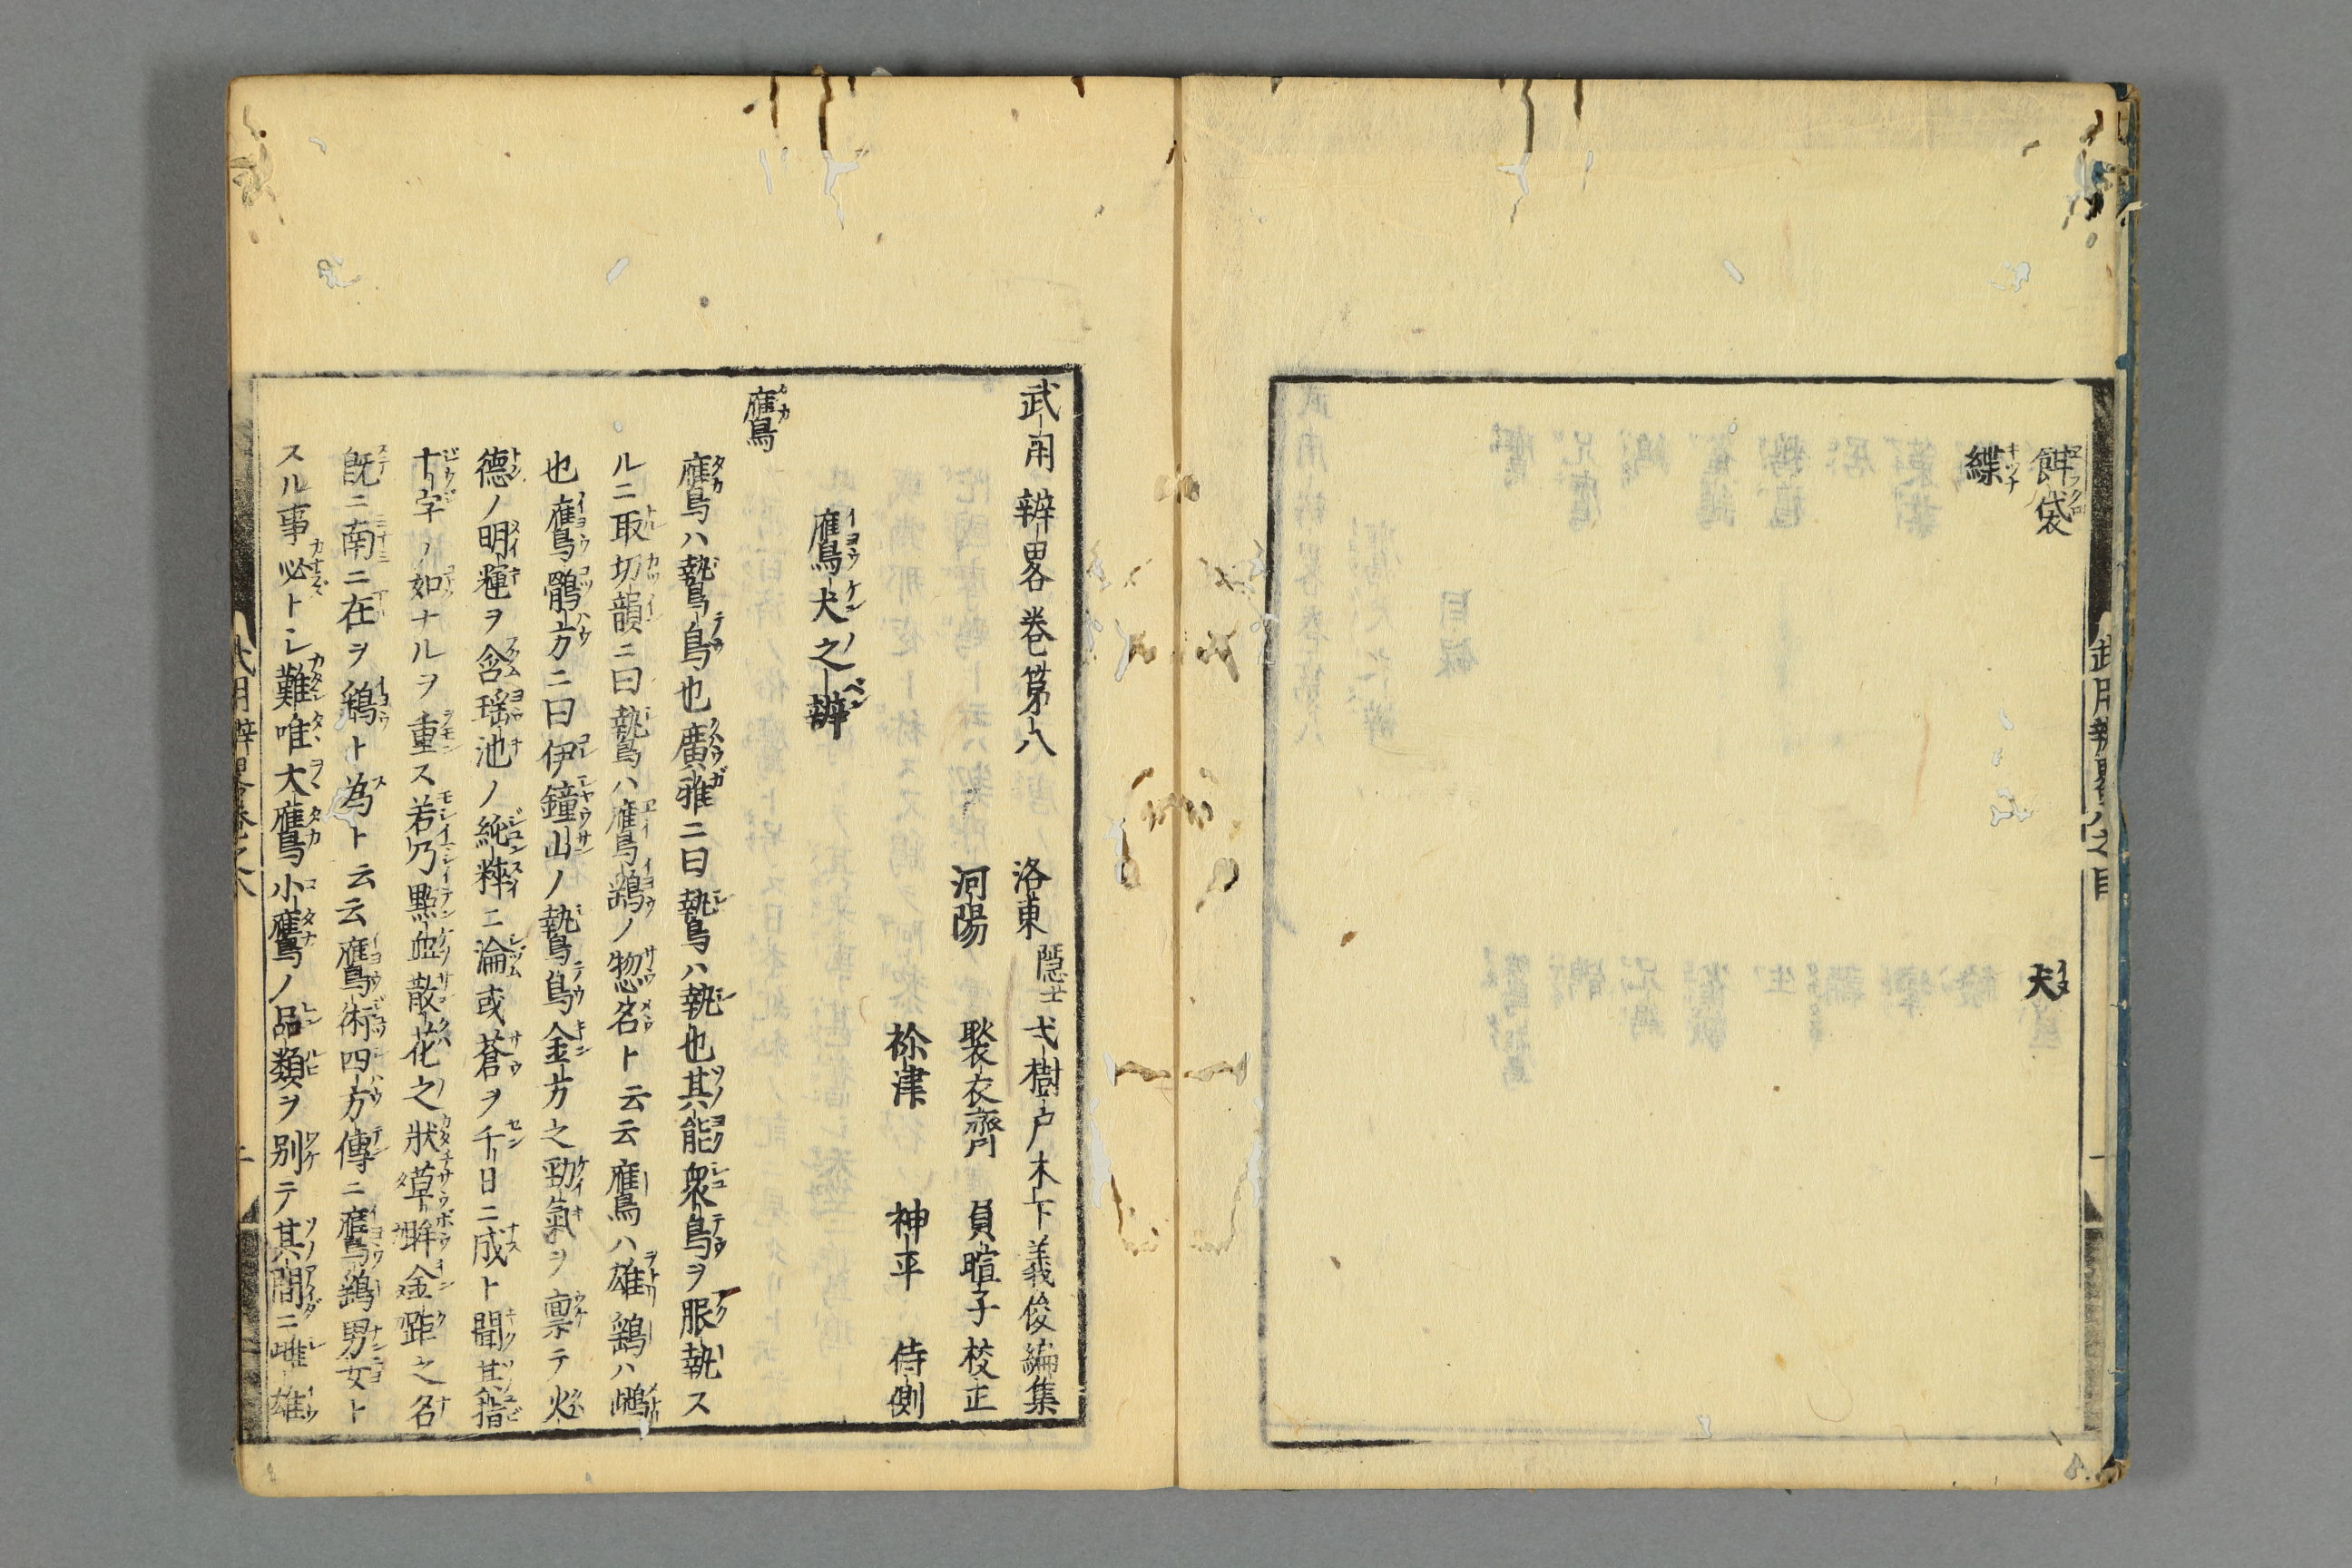 餌袋
犬
緤
武用辨畧巻第八
洛東隠士 弌樹戸木下義俊編集
河陽 褧衣齊 員暄子校正
祢津 神平 侍側
鷹犬之辨
鷹
鷹ハ鷙鳥也廣雅ニ曰鷙ハ執也其能衆鳥ヲ服執ス
ルニ取切韻ニ曰鷙ハ鷹鷂ノ惣名ト云云鷹ハ雄鷂ハ鴟
也鷹鶻方ニ曰伊鐘山ノ鷙鳥金方之勁氣ヲ禀テ火
徳ノ明輝ヲ含瑶池ノ純粹ニ淪或蒼ヲ千日ニ成ト聞其指
十字ノ如ナルヲ重ス若乃點血散花之狀 眸金距之名
既ニ南ニ在ヲ鷂ト為ト云云鷹術四方傳ニ鷹鷂男女ト
スル事必トシ難唯大鷹小鷹ノ品類ヲ別テ其間ニ雌雄